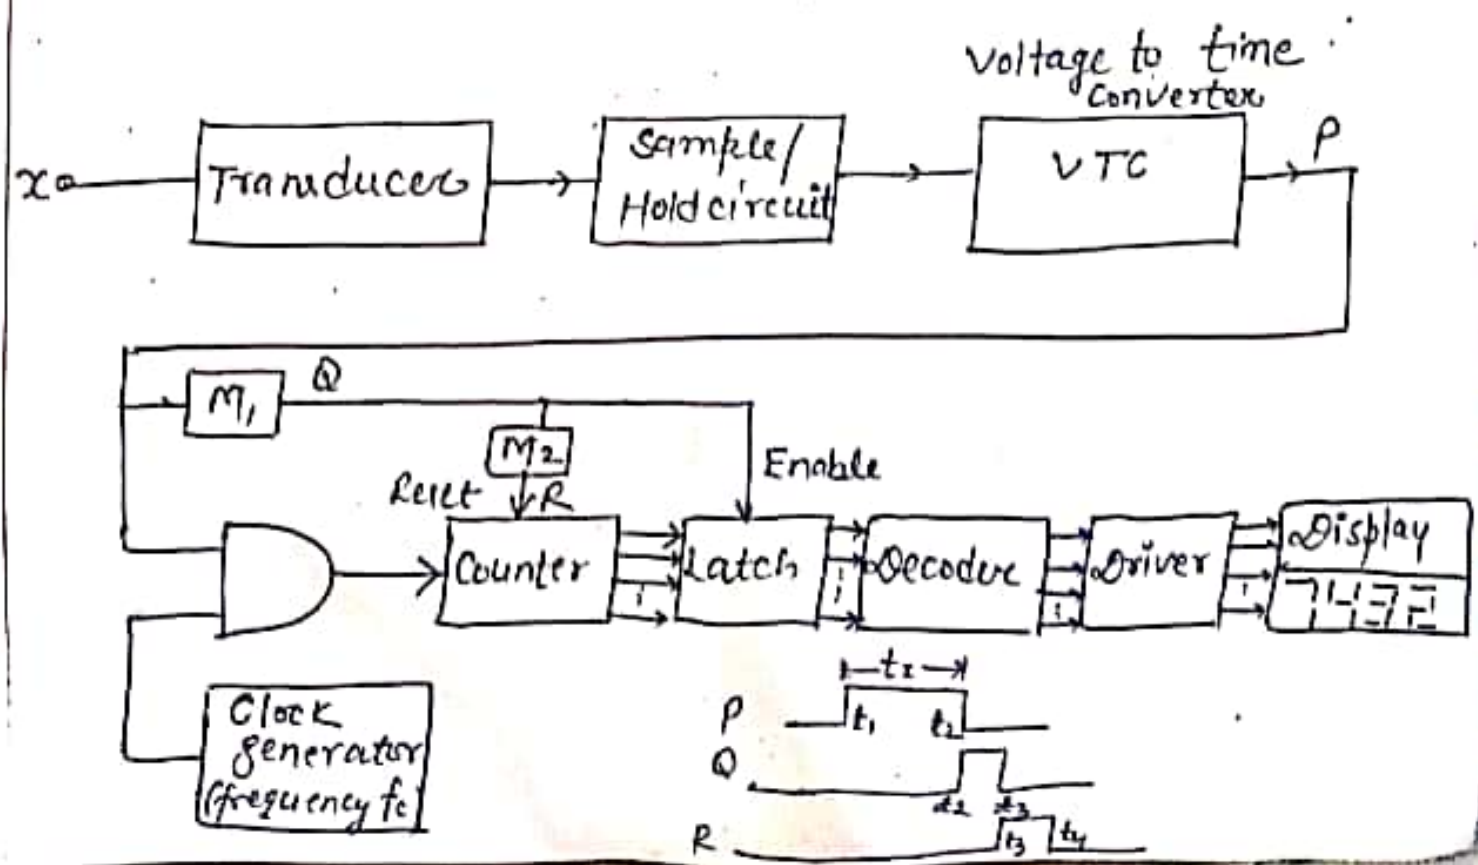 Voltage to time
Converter
x
Transducer
Sample/
Hold circuit
VTC
P
M1
Q
M2
Reset
R
Enable
Counter
Latch
Decoder
Driver
Display
7432
Clock
generator
(frequency fc)
tx
P
t1
t2
Q
t2
t3
R
t3
t4